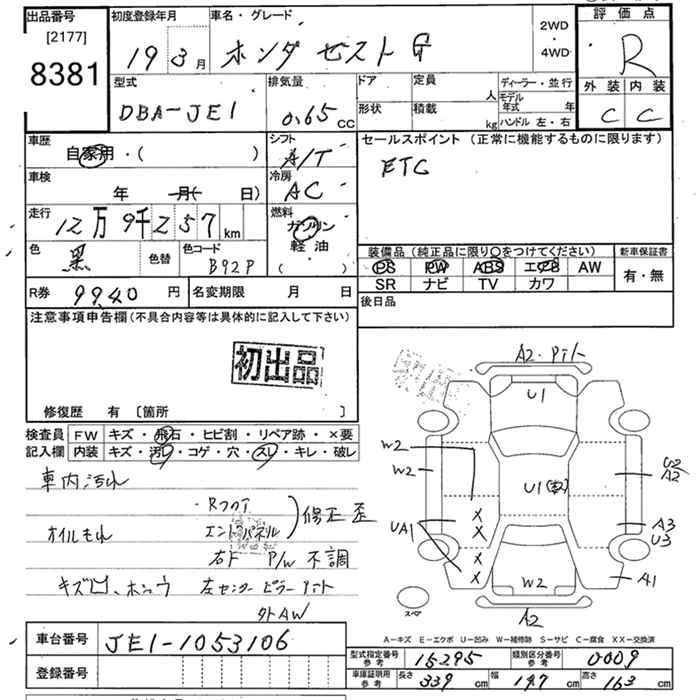 出品番号 [2177] 8381
初度登録年月 19 3月
車名・グレード ホンダ ゼスト G
2WD・4WD
評価点 R
外装 内装
C C
型式 DBA-JE1
排気量 0.65 CC
ドア 定員 人
形状 積載 kg
ディーラー・並行
モデル年式 年
ハンドル 左・右
車歴 自家用・( )
シフト A/T
セールスポイント (正常に機能するものに限ります)
ETC
車検 年 月( 日)
冷房 AC
走行 12万9千257km
燃料 ガソリン 軽油 ( )
色 黒 色替 色コード B92P
装備品 (純正品に限り○をつけてください)
新車保証書 有・無
PS PW ABS エアB AW
SR ナビ TV カワ
R券 9940円
名変期限 月 日
後日品
注意事項申告欄 (不具合内容等は具体的に記入して下さい)
初出品
修復歴 有 〔箇所 〕
検査員記入欄
FW キズ・飛石・ヒビ割・リペア跡・×要
内装 キズ・汚レ・コゲ・穴・スレ・キレ・破レ
車内汚れ
・Rフロア
オイルもれ エンドパネル 修正歪
右ド P/W 不調
キズ凹、ホシュウ 左センターピラー
社外AW
A2・ピト
U1
W2
W2
U1
U2
A2
UA1
X
X
X
X
A3
U3
W2
A1
A2
スペア
A-キズ E-エクボ U-凹み W-補修跡 S-サビ C-腐食 XX-交換済
車台番号 JE1-1053106
登録番号
型式指定番号 参考 15295
類別区分番号 参考 0009
車庫証明用 参考 長さ 339cm 幅 147cm 高さ 163cm